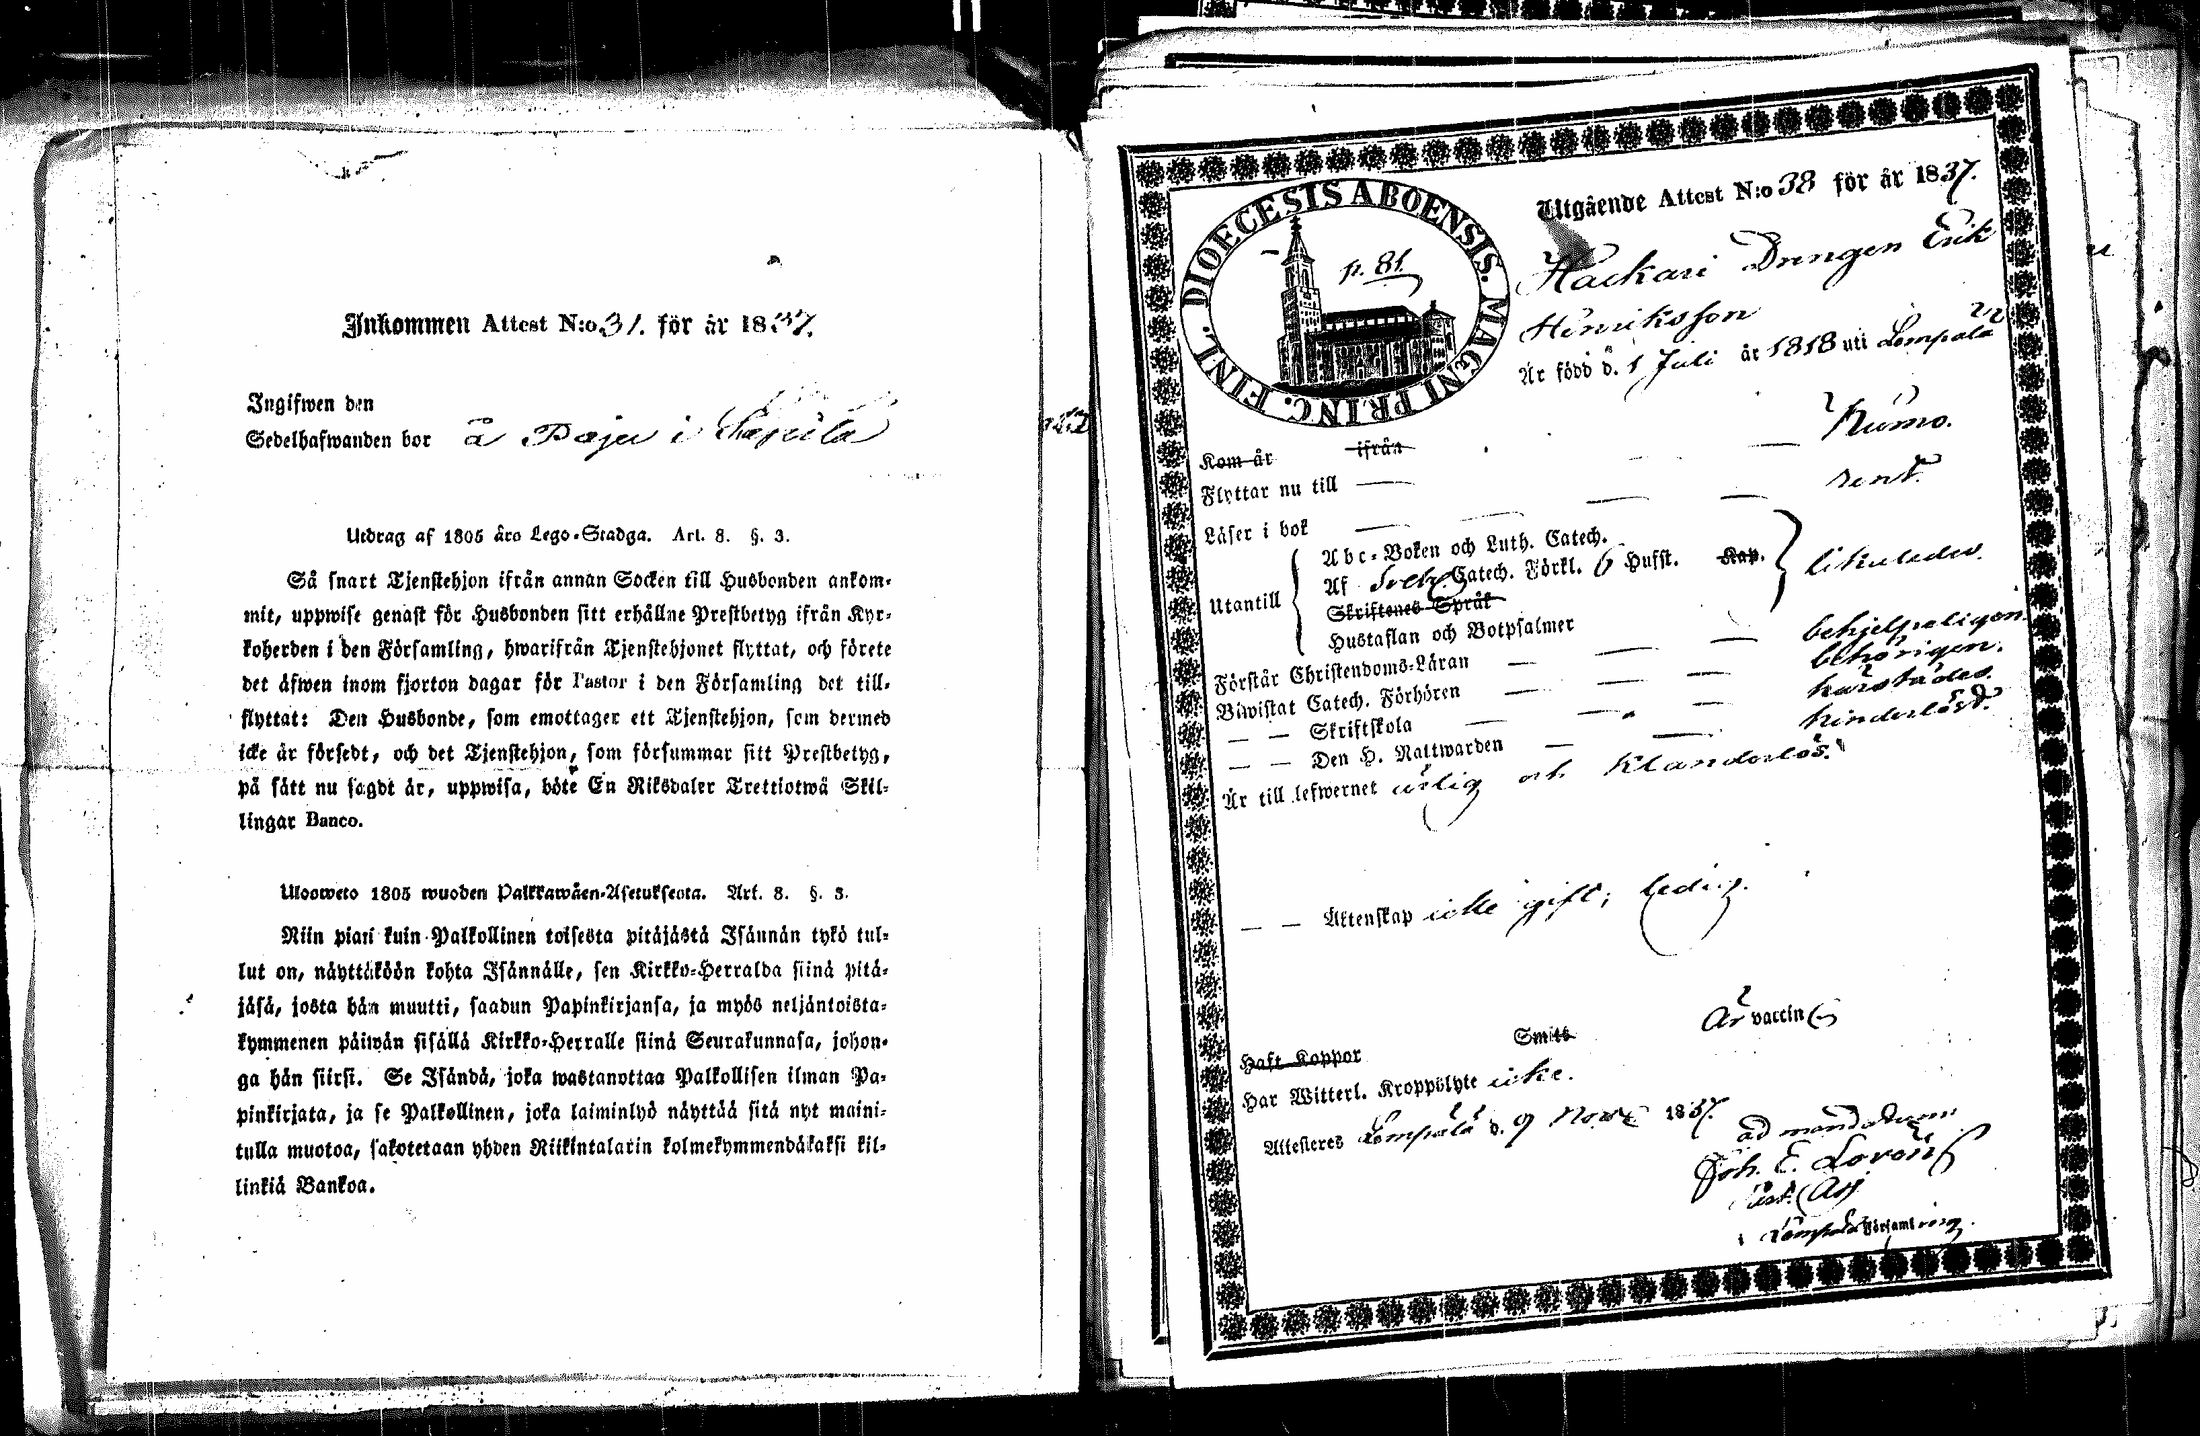 Inkommen Attest N:o 31. för år 1837.
Ingifwen den
Sedelhafwanden bor å Paja i
Utdrag af 1805 års Lego-Stadga. Art. 8. §. 3.
Så snart Tjenstehjon ifrån annan Socken till Husbonden ankom-
mit, uppwise genast för Husbonden sitt erhållne Prestbetyg ifrån Kyr-
koherden i den Församling, hwarifrån Tjenstehjonet flyttat, och förete
det äfwen inom fjorton dagar för Pastor i den Församling det till-
flyttat: Den Husbonde, som emottager ett Tjenstehjon, som dermed
icke är försedt, och det Tjenstehjon, som försummar sitt Prestbetyg,
på sätt nu sagdt är, uppwisa, böte En Riksdaler Trettiotwå Skil-
lingar Banco.
Ulosweto 1805 wuoden Palkkawäen-Asetuksesta. Art. 8. §. 3.
Niin piari kuin Palkollinen toisesta pitäjästä Isännän tykö tul-
lut on, näyttäköön kohta Isännälle, sen Kirkko-Herralda siinä pitä-
jäsä, josta hän muutti, saadun Papinkirjansa, ja myös neljäntoista-
kymmenen päiwän sisällä Kirkko-Herralle siinä Seurakunnasa, johon-
ga hän siirsi. Se Isändä, joka wastanottaa Palkollisen ilman Pa-
pinkirjata, ja se Palkollinen, joka laiminlyö näyttää sitä nyt maini-
tulla muotoa, sakotetaan yhden Riikintalarin kolmekymmendäkaksi kil-
linkiä Bankoa.
DIOECESIS ABOENSIS. MAGNI PRINC. FINL.
p. 81.
Utgående Attest N:o 38 för år 1837.
Hackari Drengen Erik
Henriksson
Är född d. 1 Juli år 1818 uti Lempälä
Kom år ifrån
Flyttar nu till Kumo.
Läser i bok rent.
Utantill
Abc-Boken och Luth. Catech.
Af Sveb. Catech. Förkl. 6 Hufst. Kap.
Skriftenes Språk
Hustaflan och Botpsalmer
likaledes.
Förstår Christendoms-Läran behjelpeligen.
Biwistat Catech. Förhören behörigen.
— — Skriftskola härstädes.
— — Den H. Nattwarden hinderlöst.
Är till lefwernet ärlig och klanderlös.
— — Äktenskap icke gift; ledig.
Haft Koppor Smitt Är vaccin
Har Witterl. Kroppslyte icke.
Attesteres Lempälä d. 9 Nov. 1837.
ad mandatum
Joh. E. Lorén
i Lempälä Församling.